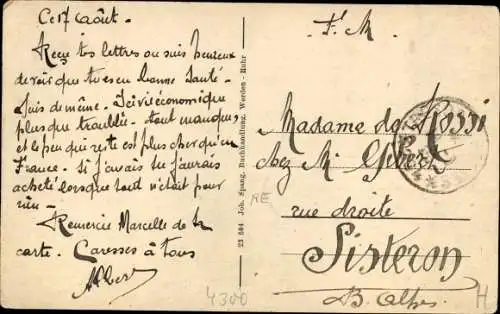 Ce 17 Août.
Reçu tes lettres ou suis heureux
de voir que tu es en bonne santé.
Suis de même. Ici vie économique
plus que troublée. tout manque,
et le peu que reste est plus cher qu'en
France. Si j'avais su j'aurais
acheté lorsque tout n'était pour
rien.
Remercie Marcelle de sa
carte. Caresses à tous
Albert
23 584 Joh. Spang, Buchhandlung, Werden-Ruhr
F. M.
Madame de Rossi
chez Mr
rue droite
Sisteron
B. Alpes
RE
4300
H